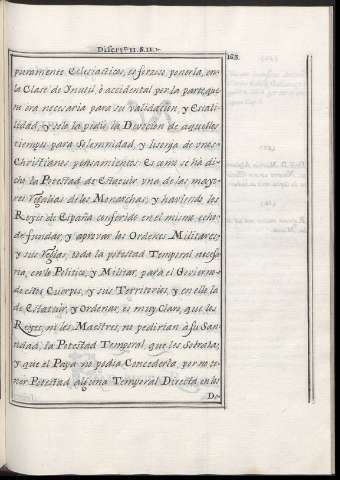 Disert.ⁿ II. §. II.
163.
puramente Eclesiasticos, es forzoso ponerla, en
la Clase de Inutil, ò accidental por la parte, que
no era necesaria para su validacion, y Estabi
lidad, y solo la pedia la Devocion de aquellos
tiempos para Solemnidad, y lisonja de unos
Christianos pensamientos. Es como se ha di
cho la Potestad de Estatuir una de las mayo
res Regalias de los Monarchas, y haviendo los
Reyes de España conferido en el mismo echo
de fundar, y aprovar las Ordenes Militares
y sus Reglas, toda la potestad Temporal necesa
ria, en lo Politico, y Militar, para el Govierno
de estos Cuerpos, y sus Territorios, y en ella la
de Estatuir, y Ordenar, es muy Claro, que los
Reyes, ni los Maestres, no pedirian à su San
tidad, la Potestad Temporal, que les Sobraba;
y que el Papa no podia Concederla, por no te
ner Potestad alguna Temporal Directa en los
Do-